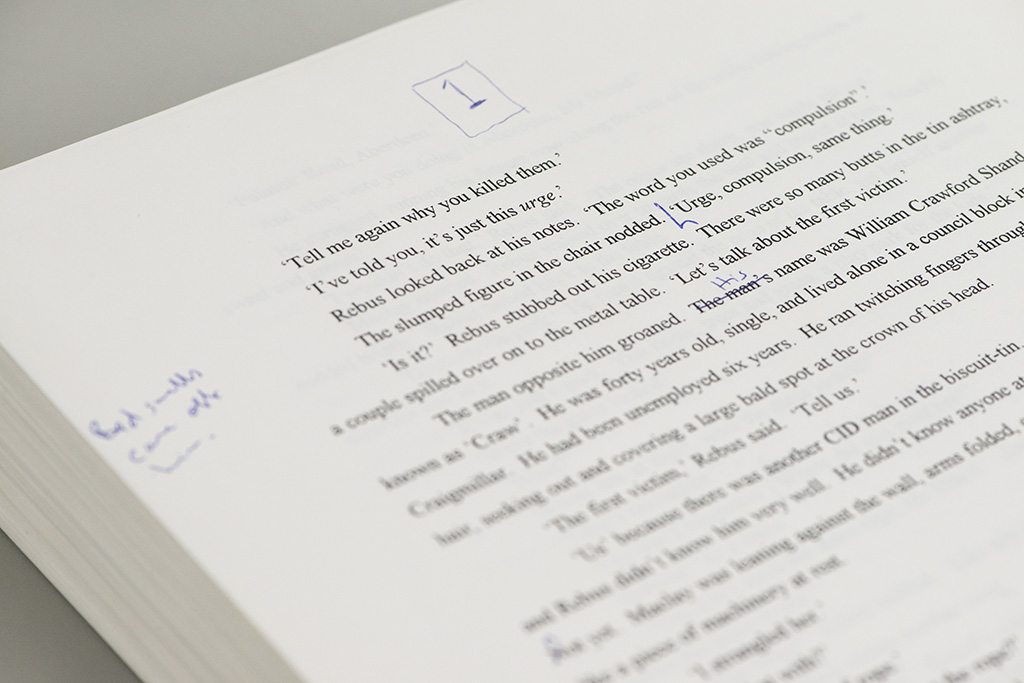 1
'Tell me again why you killed them.'
'I've told you, it's just this urge.'
Rebus looked back at his notes. 'The word you used was "compulsion".'
The slumped figure in the chair nodded. 'Urge, compulsion, same thing.'
'Is it?' Rebus stubbed out his cigarette. There were so many butts in the tin ashtray,
a couple spilled over on to the metal table. 'Let's talk about the first victim.'
His
The man opposite him groaned. The man's name was William Crawford Shand,
known as 'Craw'. He was forty years old, single, and lived alone in a council block in
Craigmillar. He had been unemployed six years. He ran twitching fingers through
hair, seeking out and covering a large bald spot at the crown of his head.
'The first victim,' Rebus said. 'Tell us.'
'Us' because there was another CID man in the biscuit-tin.
and Rebus didn't know him very well. He didn't know anyone at
yet. Maclay was leaning against the wall, arms folded,
a piece of machinery at rest.
'I strangled her.'
'